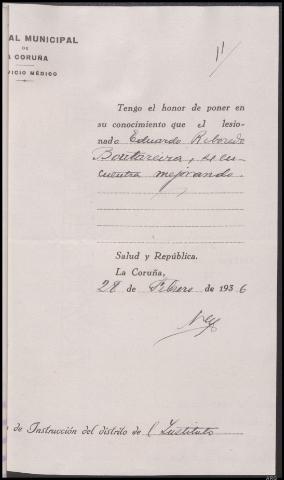 AL MUNICIPAL
DE
A CORUÑA
VICIO MÉDICO
11/
Tengo el honor de poner en
su conocimiento que el lesio-
nado Eduardo Reboredo
se en-
cuentra mejorando.
Salud y República.
La Coruña,
28 de Febrero de 1936
de Instrucción del distrito de l Instituto
ARG